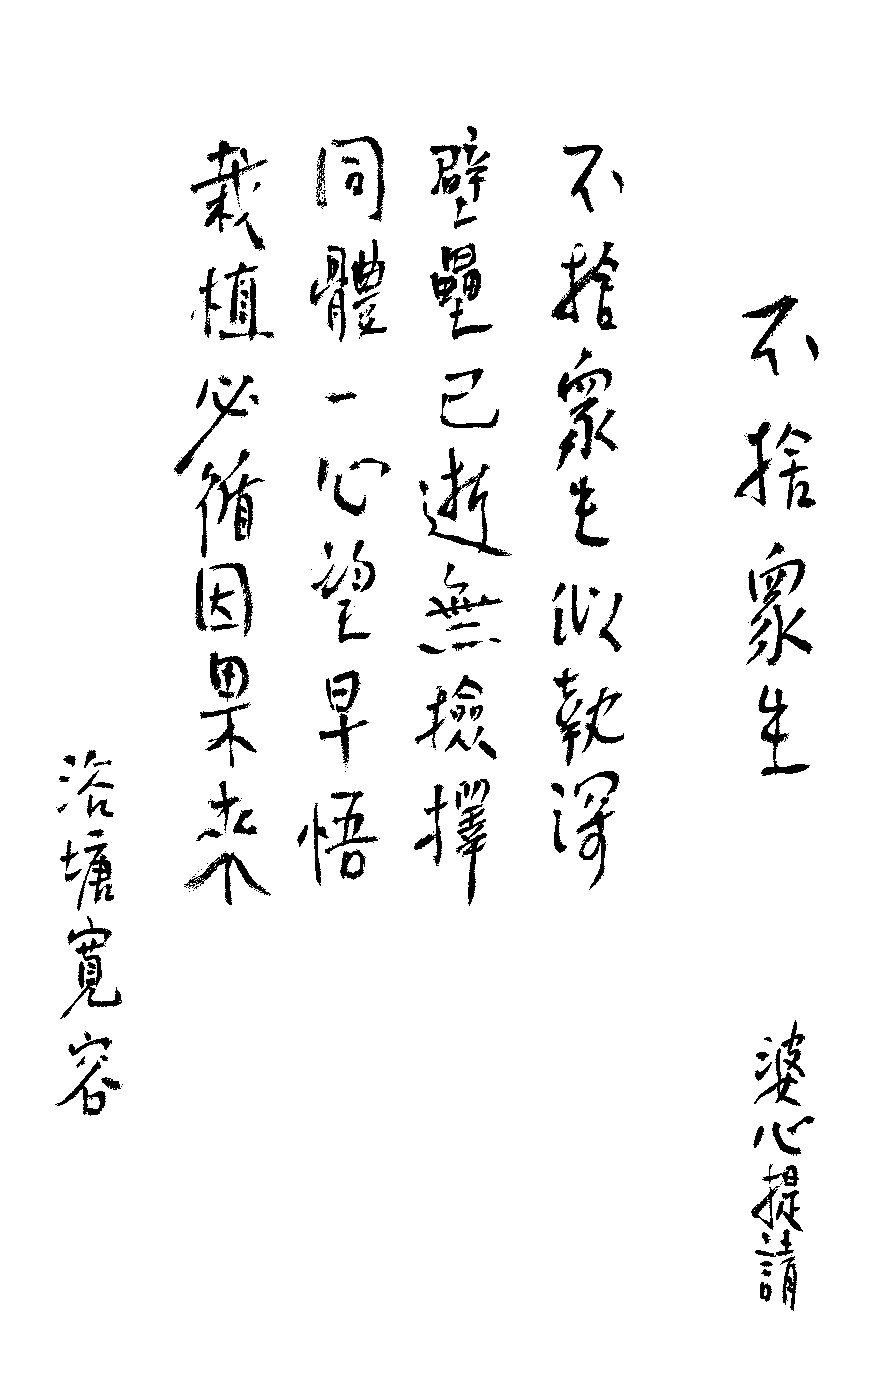 不捨眾生
婆心提請
不捨眾生似執深
壁壘已逝無撿擇
同體一心望早悟
栽植必循因果來
浴塘寬容